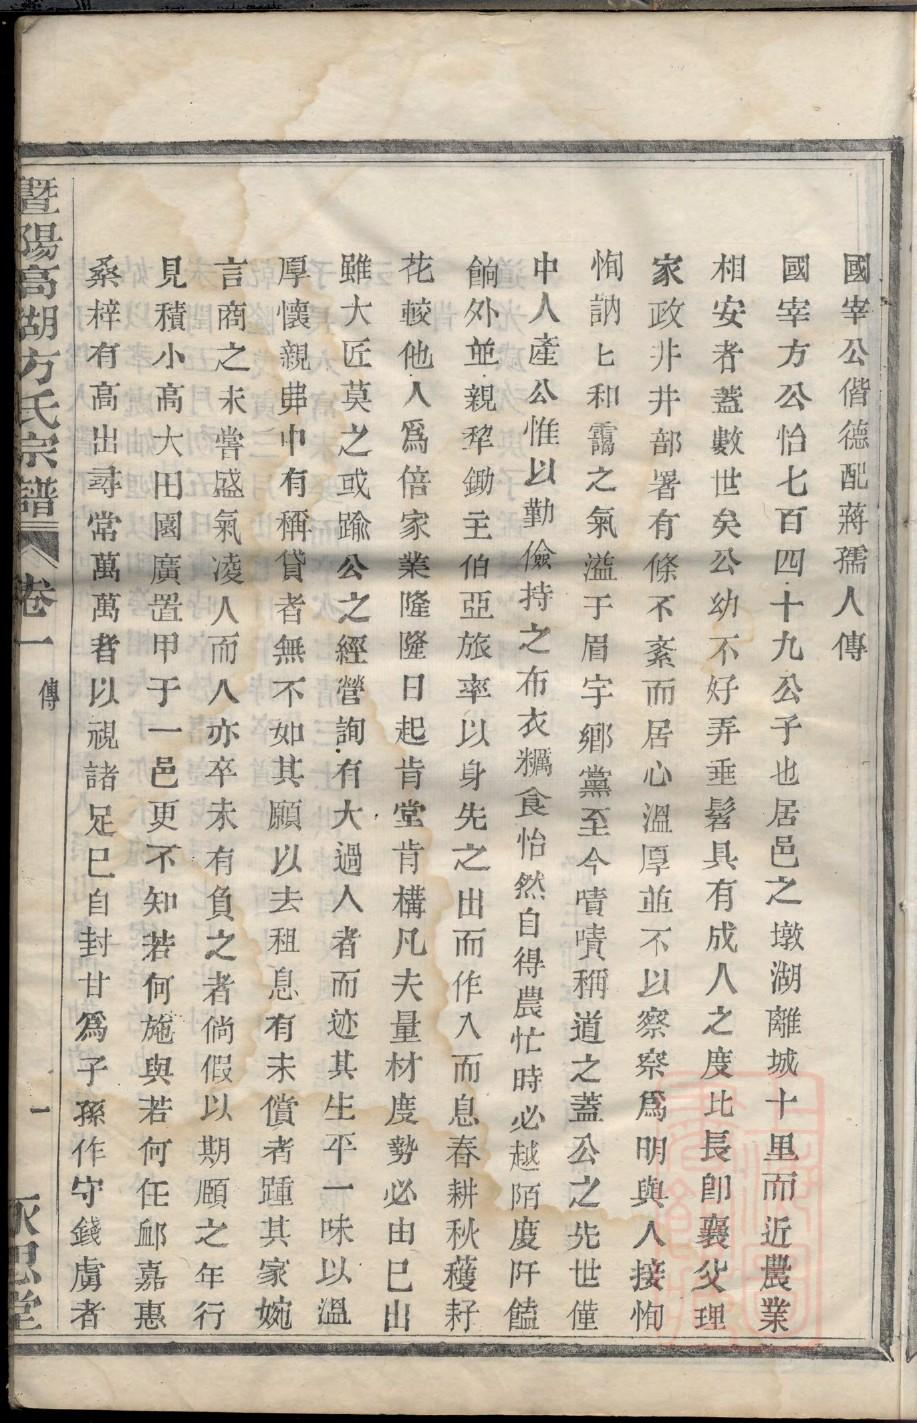 國宰公偕德配蔣孺人傳
國宰方公怡七百四十九公子也居邑之墩湖離城十里而近農業
相安者蓋數世矣公幼不好弄垂髫具有成人之度比長卽襄父理
家政井井部署有條不紊而居心溫厚並不以察察爲明與人接恂
恂訥訥和靄之氣溢于眉宇鄉黨至今嘖嘖稱道之蓋公之先世僅
中人產公惟以勤儉持之布衣糲食怡然自得農忙時必越陌度阡饁
餉外並親犂鋤主伯亞旅率以身先之出而作入而息春耕秋穫耔
花較他人爲倍家業隆隆日起肯堂肯構凡夫量材度勢必由巳出
雖大匠莫之或踰公之經營詢有大過人者而迹其生平一味以溫
厚懷親弗中有稱貸者無不如其願以去租息有未償者踵其家婉
言商之未嘗盛氣凌人而人亦卒未有負之者倘假以期頤之年行
見積小高大田園廣置甲于一邑更不知若何施與若何任䘏嘉惠
桑梓有高出尋常萬萬者以視諸足巳自封甘爲子孫作守錢虜者
暨陽高湖方氏宗譜
卷一
傳
一
永思堂